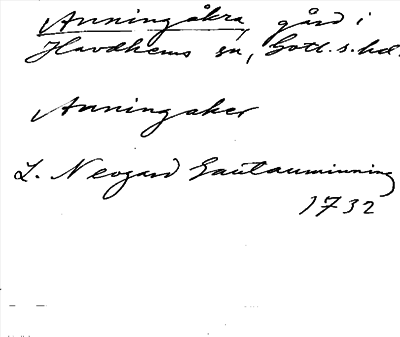 Anningåkra, gård i
Havdhems sn, Gotl. s. hd.
Anningaker
L. Neogard Gautauminning
1732